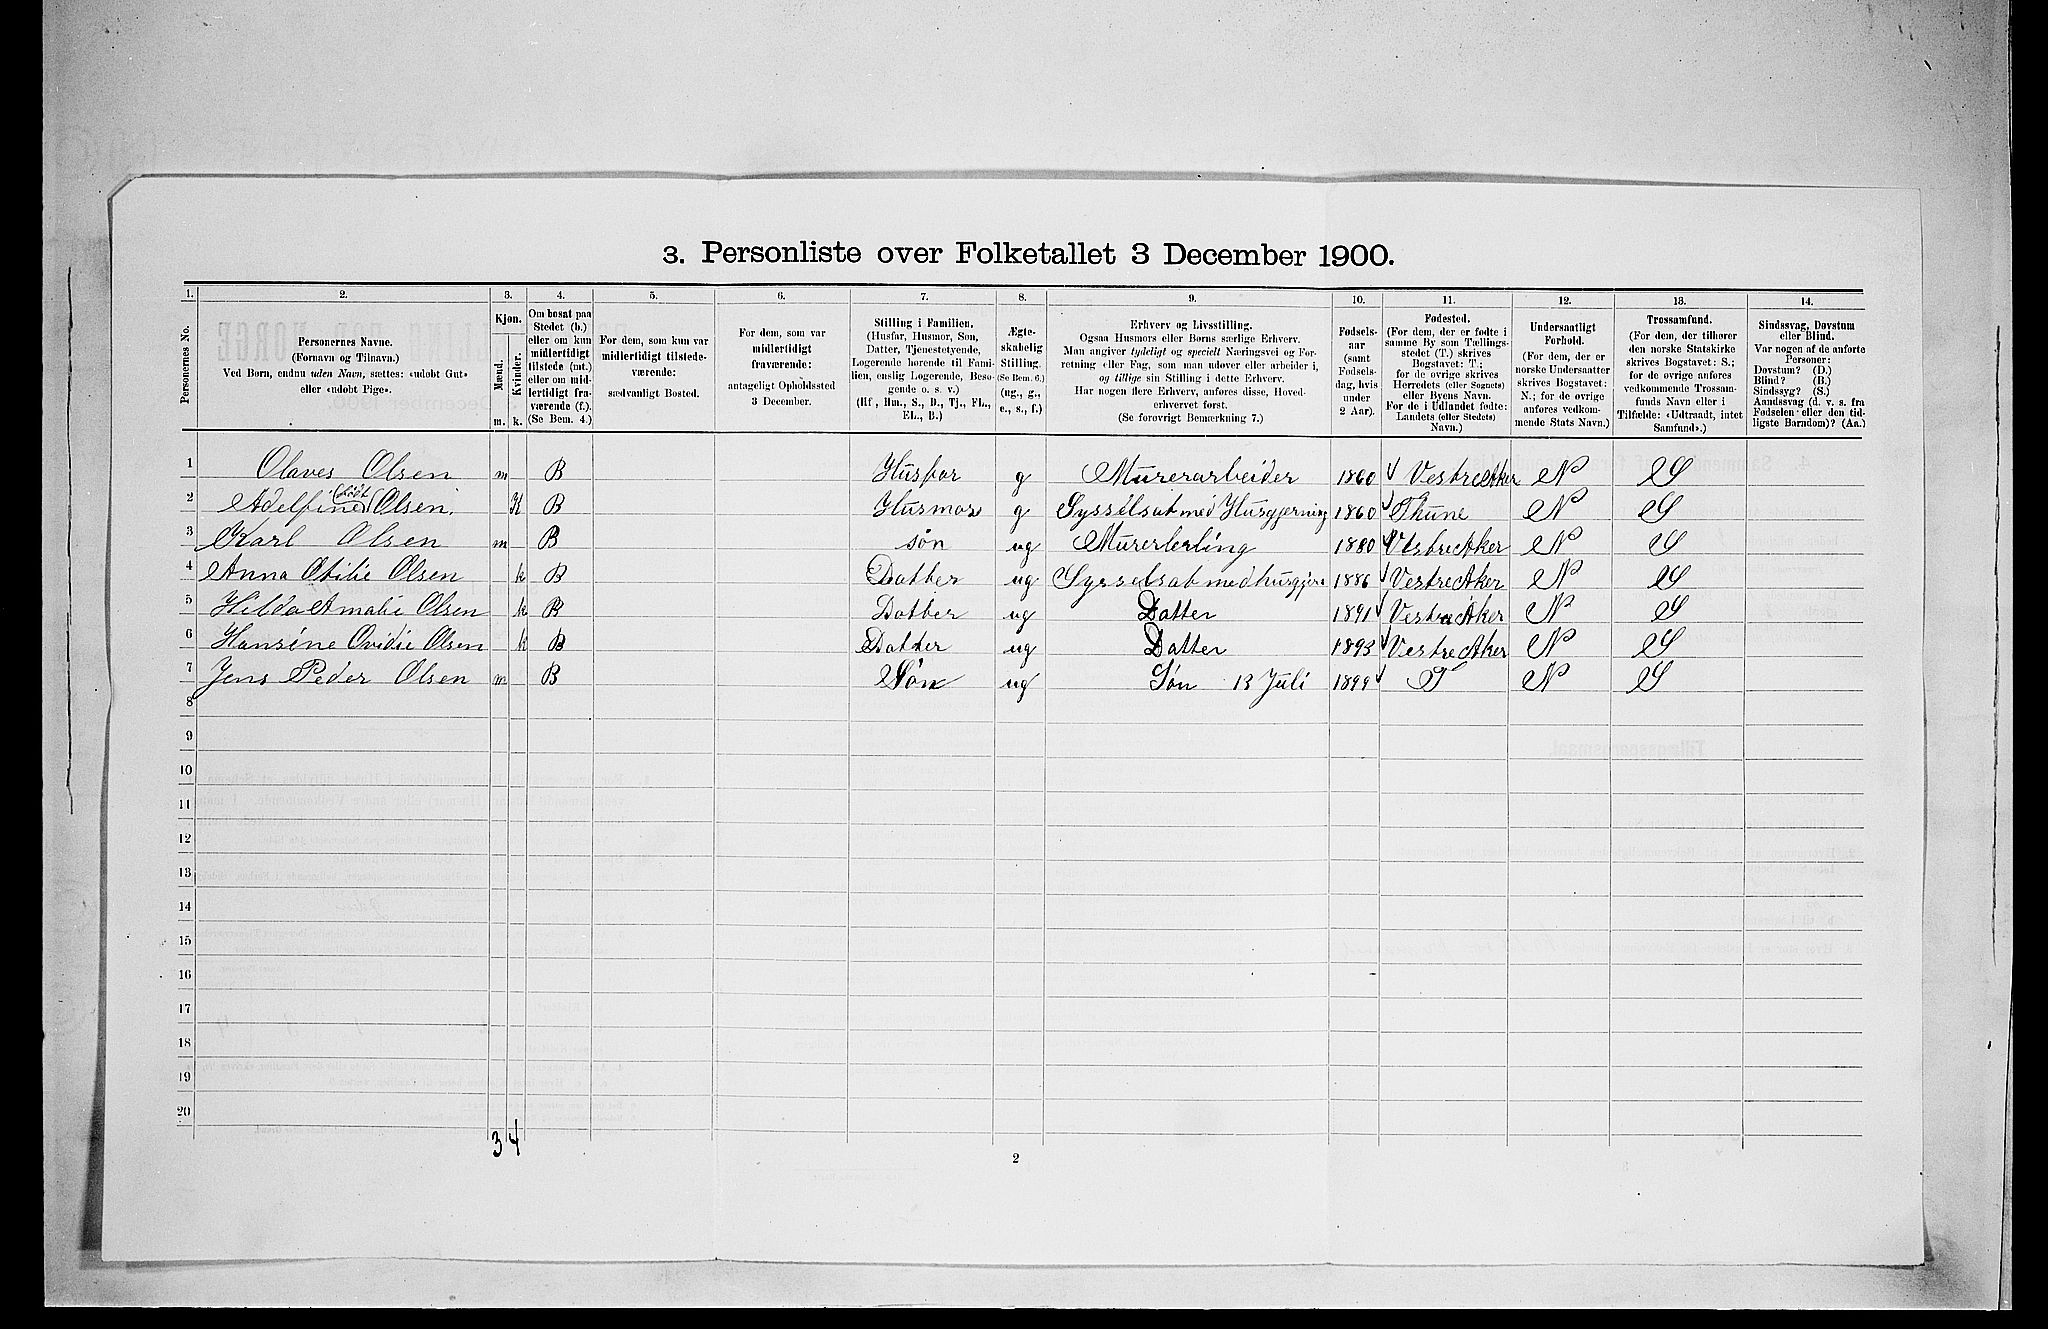 3. Personliste over Folketallet 3 December 1900.
1. 2. 3. 4. 5. 6. 7. 8. 9. 10. 11. 12. 13. 14.
Personernes No.
Personernes Navne.
(Fornavn og Tilnavn.)
Ved Børn, endnu uden Navn, sættes: «udøbt Gut»
eller «udøbt Pige».
Kjøn.
Mænd. Kvinder.
m. k.
Om bosat paa
Stedet (b.)
eller om kun
midlertidigt
tilstede (mt.)
eller om mid-
lertidigt fra-
værende (f.).
(Se Bem. 4.)
For dem, som kun var
midlertidigt tilstede-
værende:
sædvanligt Bosted.
For dem, som var
midlertidigt
fraværende:
antageligt Opholdssted
3 December.
Stilling i Familien.
(Husfar, Husmor, Søn,
Datter, Tjenestetyende,
Logerende hørende til Fami-
lien, enslig Logerende, Besø-
gende o. s. v.)
(Hf, Hm., S., D., Tj., FL.,
EL., B.)
Ægte-
skabelig
Stilling.
(Se Bem. 6.)
(ug., g.,
e., s., f.)
Erhverv og Livsstilling.
Ogsaa Husmors eller Børns særlige Erhverv.
Man angiver tydeligt og specielt Næringsvei og For-
retning eller Fag, som man udøver eller arbeider i,
og tillige sin Stilling i dette Erhverv.
Har nogen flere Erhverv, anføres disse, Hoved-
erhvervet først.
(Se forøvrigt Bemærkning 7.)
Fødsels-
aar
(samt
Fødsels-
dag, hvis
under
2 Aar).
Fødested.
(For dem, der er fødte i
samme By som Tællings-
stedet (T.) skrives
Bogstavet: T.;
for de øvrige skrives
Herredets (eller Sognets)
eller Byens Navn.
For de i Udlandet fødte:
Landets (eller Stedets)
Navn.)
Undersaatligt
Forhold.
(For dem, der er
norske Undersaatter
skrives Bogstavet:
N.; for de øvrige
anføres vedkom-
mende Stats Navn.)
Trossamfund.
(For dem, der tilhører
den norske Statskirke
skrives Bogstavet: S.;
for de øvrige anføres
vedkommende Trossam-
funds Navn eller i
Tilfælde: «Udtraadt, intet
Samfund».)
Sindssvag, Døvstum
eller Blind.
Var nogen af de anførte
Personer:
Døvstum? (D.)
Blind? (B.)
Sindssyg? (S.)
Aandssvag (d. v. s. fra
Fødselen eller den tid-
ligste Barndom)? (Aa.)
1 Olaves Olsen m B Husfar g Murerarbeider 1860 Vestre Aker N S
2 Adelfine (født Olsen. K B Husmor g Sysselsat med Husgjerning 1860 Thune N S
3 Karl Olsen m B søn ug Murerlerling 1880 Vestre Aker N S
4 Anna Otilie Olsen k B Datter ug Sysselsat med husgjern 1886 Vestre Aker N S
5 Hilda Amalie Olsen k B Datter ug Datter 1891 Vestre Aker N S
6 Hansine Ovidie Olsen k B Datter ug Datter 1893 Vestre Aker N S
7 Jens Peder Olsen m B Søn ug Søn 13 Juli 1899 T N S
8
9
10
11
12
13
14
15
16
17
18
19
20
3 4
2